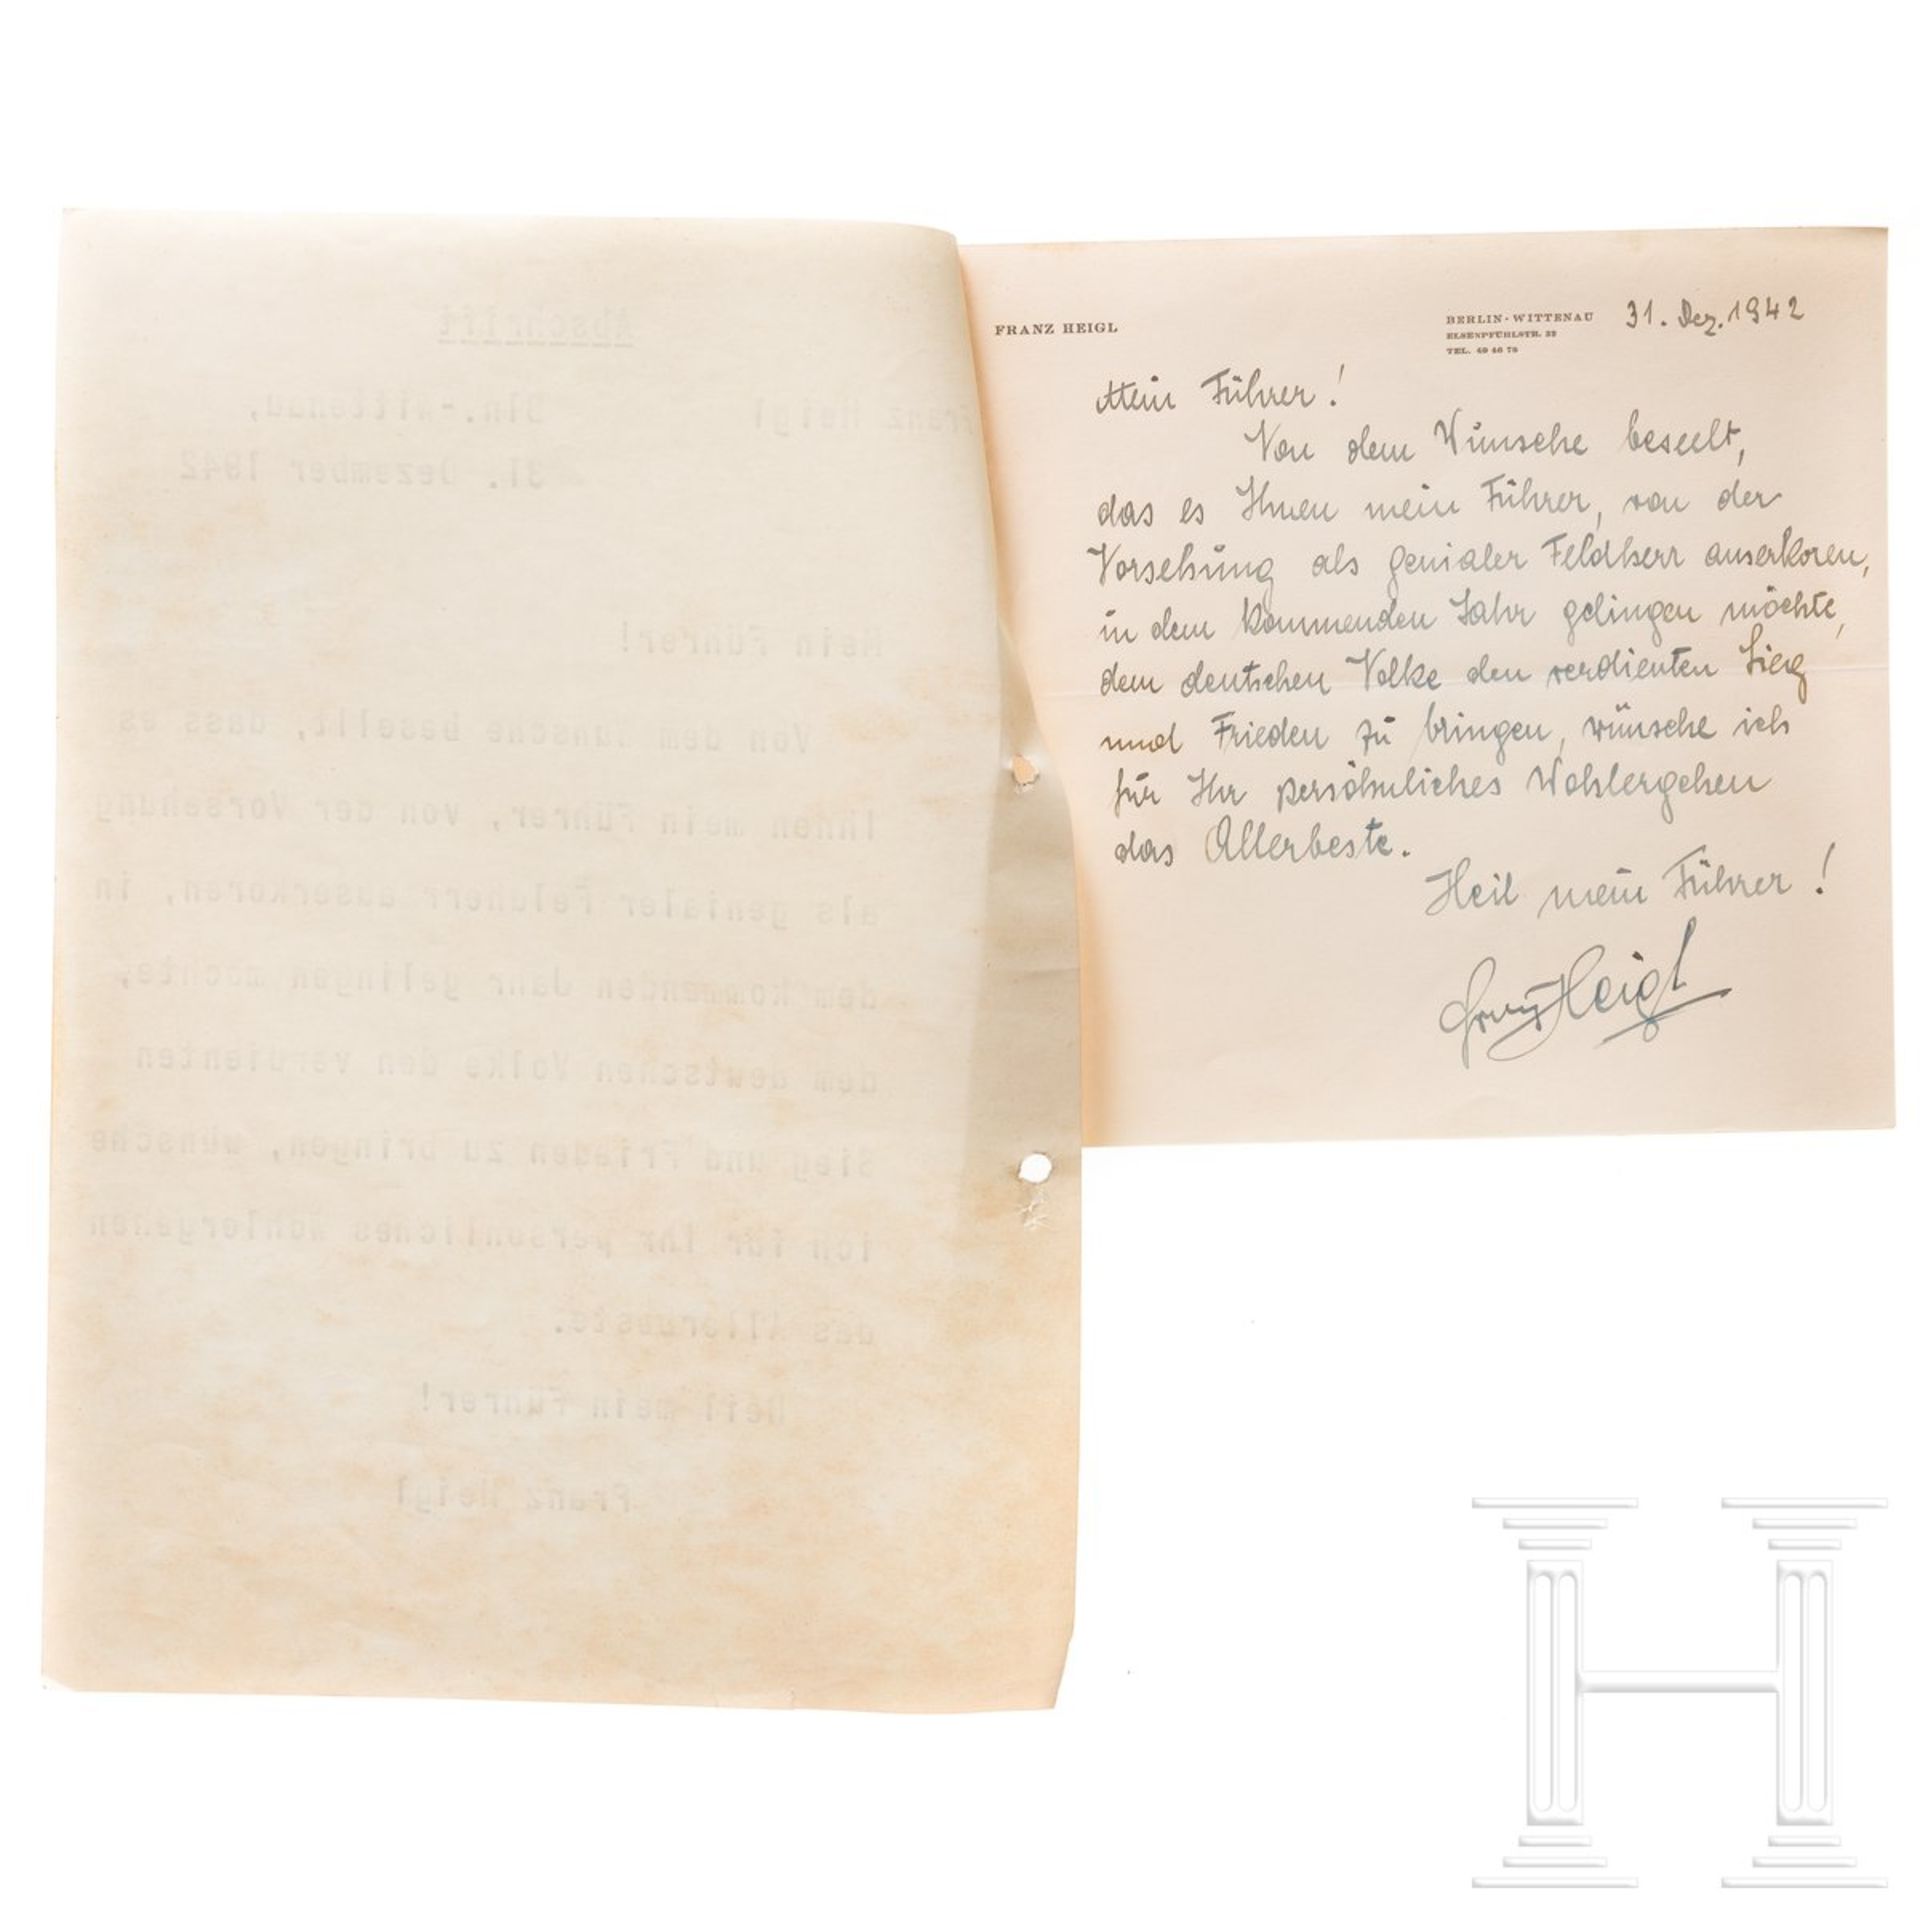 Abschrift
Franz Heigl Bln.-Wittenau,
31. Dezember 1942
Mein Führer!
Von dem Wunsche beseelt, dass es
Ihnen mein Führer, von der Vorsehung
als genialer Feldherr auserkoren, in
dem kommenden Jahr gelingen möchte,
dem deutschen Volke den verdienten
Sieg und Frieden zu bringen, wünsche
ich für Ihr persönliches Wohlergehen
das Allerbeste.
Heil mein Führer!
Franz Heigl
FRANZ HEIGL
BERLIN-WITTENAU 31. Dez. 1942
ELSENPFUHLSTR. 32
TEL. 49 46 78
Mein Führer!
Von dem Wunsche beseelt,
das es Ihnen mein Führer, von der
Vorsehung als genialer Feldherr auserkoren,
in dem kommenden Jahr gelingen möchte,
dem deutschen Volke den verdienten Sieg
und Frieden zu bringen, wünsche ich
für Ihr persöhnliches Wohlergehen
das Allerbeste.
Heil mein Führer!
Franz Heigl
H